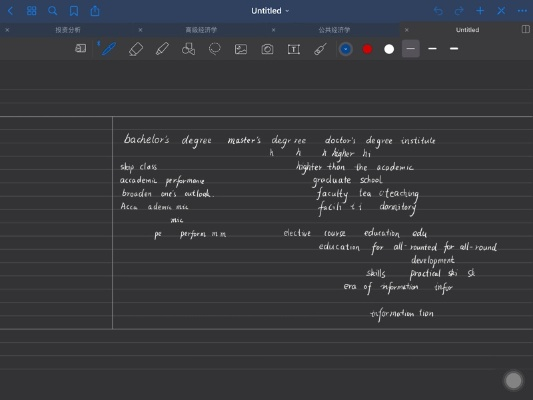 Untitled
投资分析
高级经济学
公共经济学
Untitled
bachelor's degree master's degree doctor's degree institute
h h h higher hi
skip class highter than the academic
accademic performane graduate school
broaden one's outlook. faculty tea cteaching
Acca ademic mic facili t i dormitory
mic
pe perform m m elective course education edu
education for all-rounted for all-round
development
skills practical ski sk
era of nformation infor
information tion